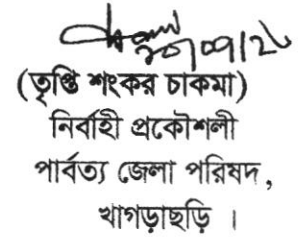 (তৃপ্তি শংকর চাকমা)
নির্বাহী প্রকৌশলী
পার্বত্য জেলা পরিষদ,
খাগড়াছড়ি ।